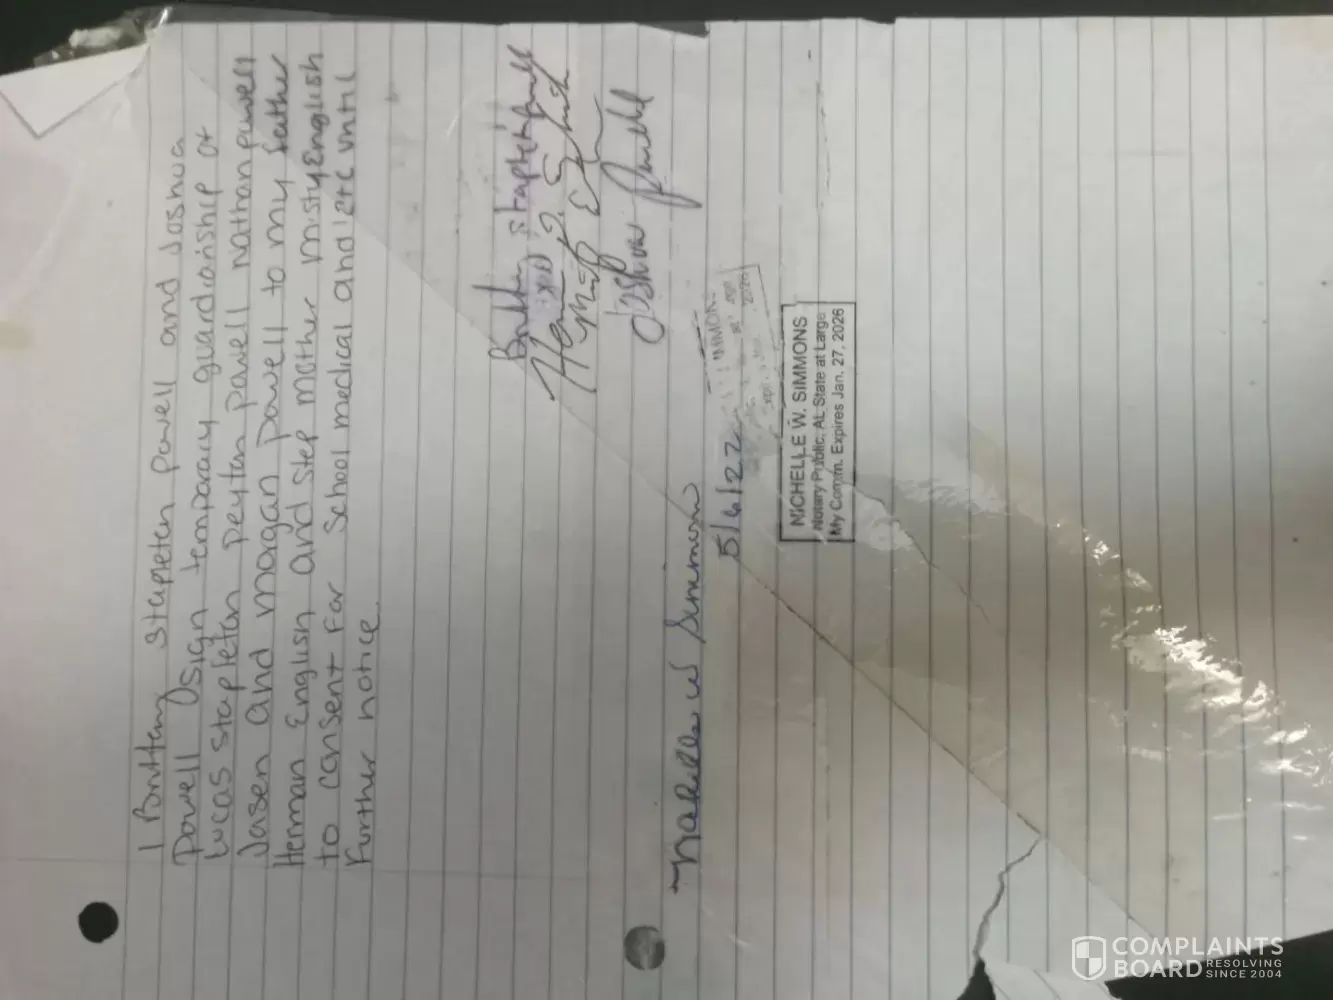 I Brittany Stapleton Powell and Joshua
Powell sign temparary guardianship of
Lucas Stapleton Peyton Powell Nathan Powell
Jasen and Morgan Powell to my father
Herman English and step mother misty English
to consent for school medical and etc until
Further notice.
Joshua Powell
Nichelle W Simmons
5/6/22
NICHELLE W. SIMMONS
Notary Public, AL State at Large
My Comm. Expires Jan. 27, 2026
COMPLAINTS
BOARD RESOLVING
SINCE 2004